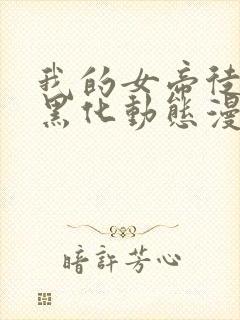 我的女帝徒
黑化動態漫
暗許芳心